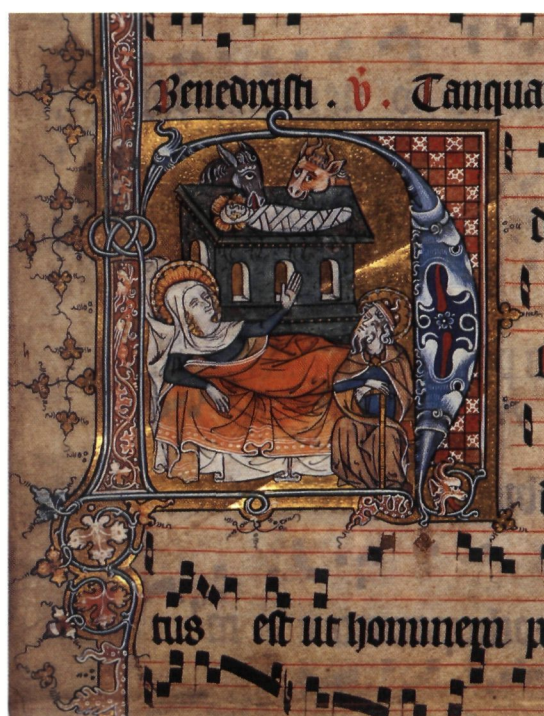 Benedixisti . v̇. Tanqua
tus est ut hominem p